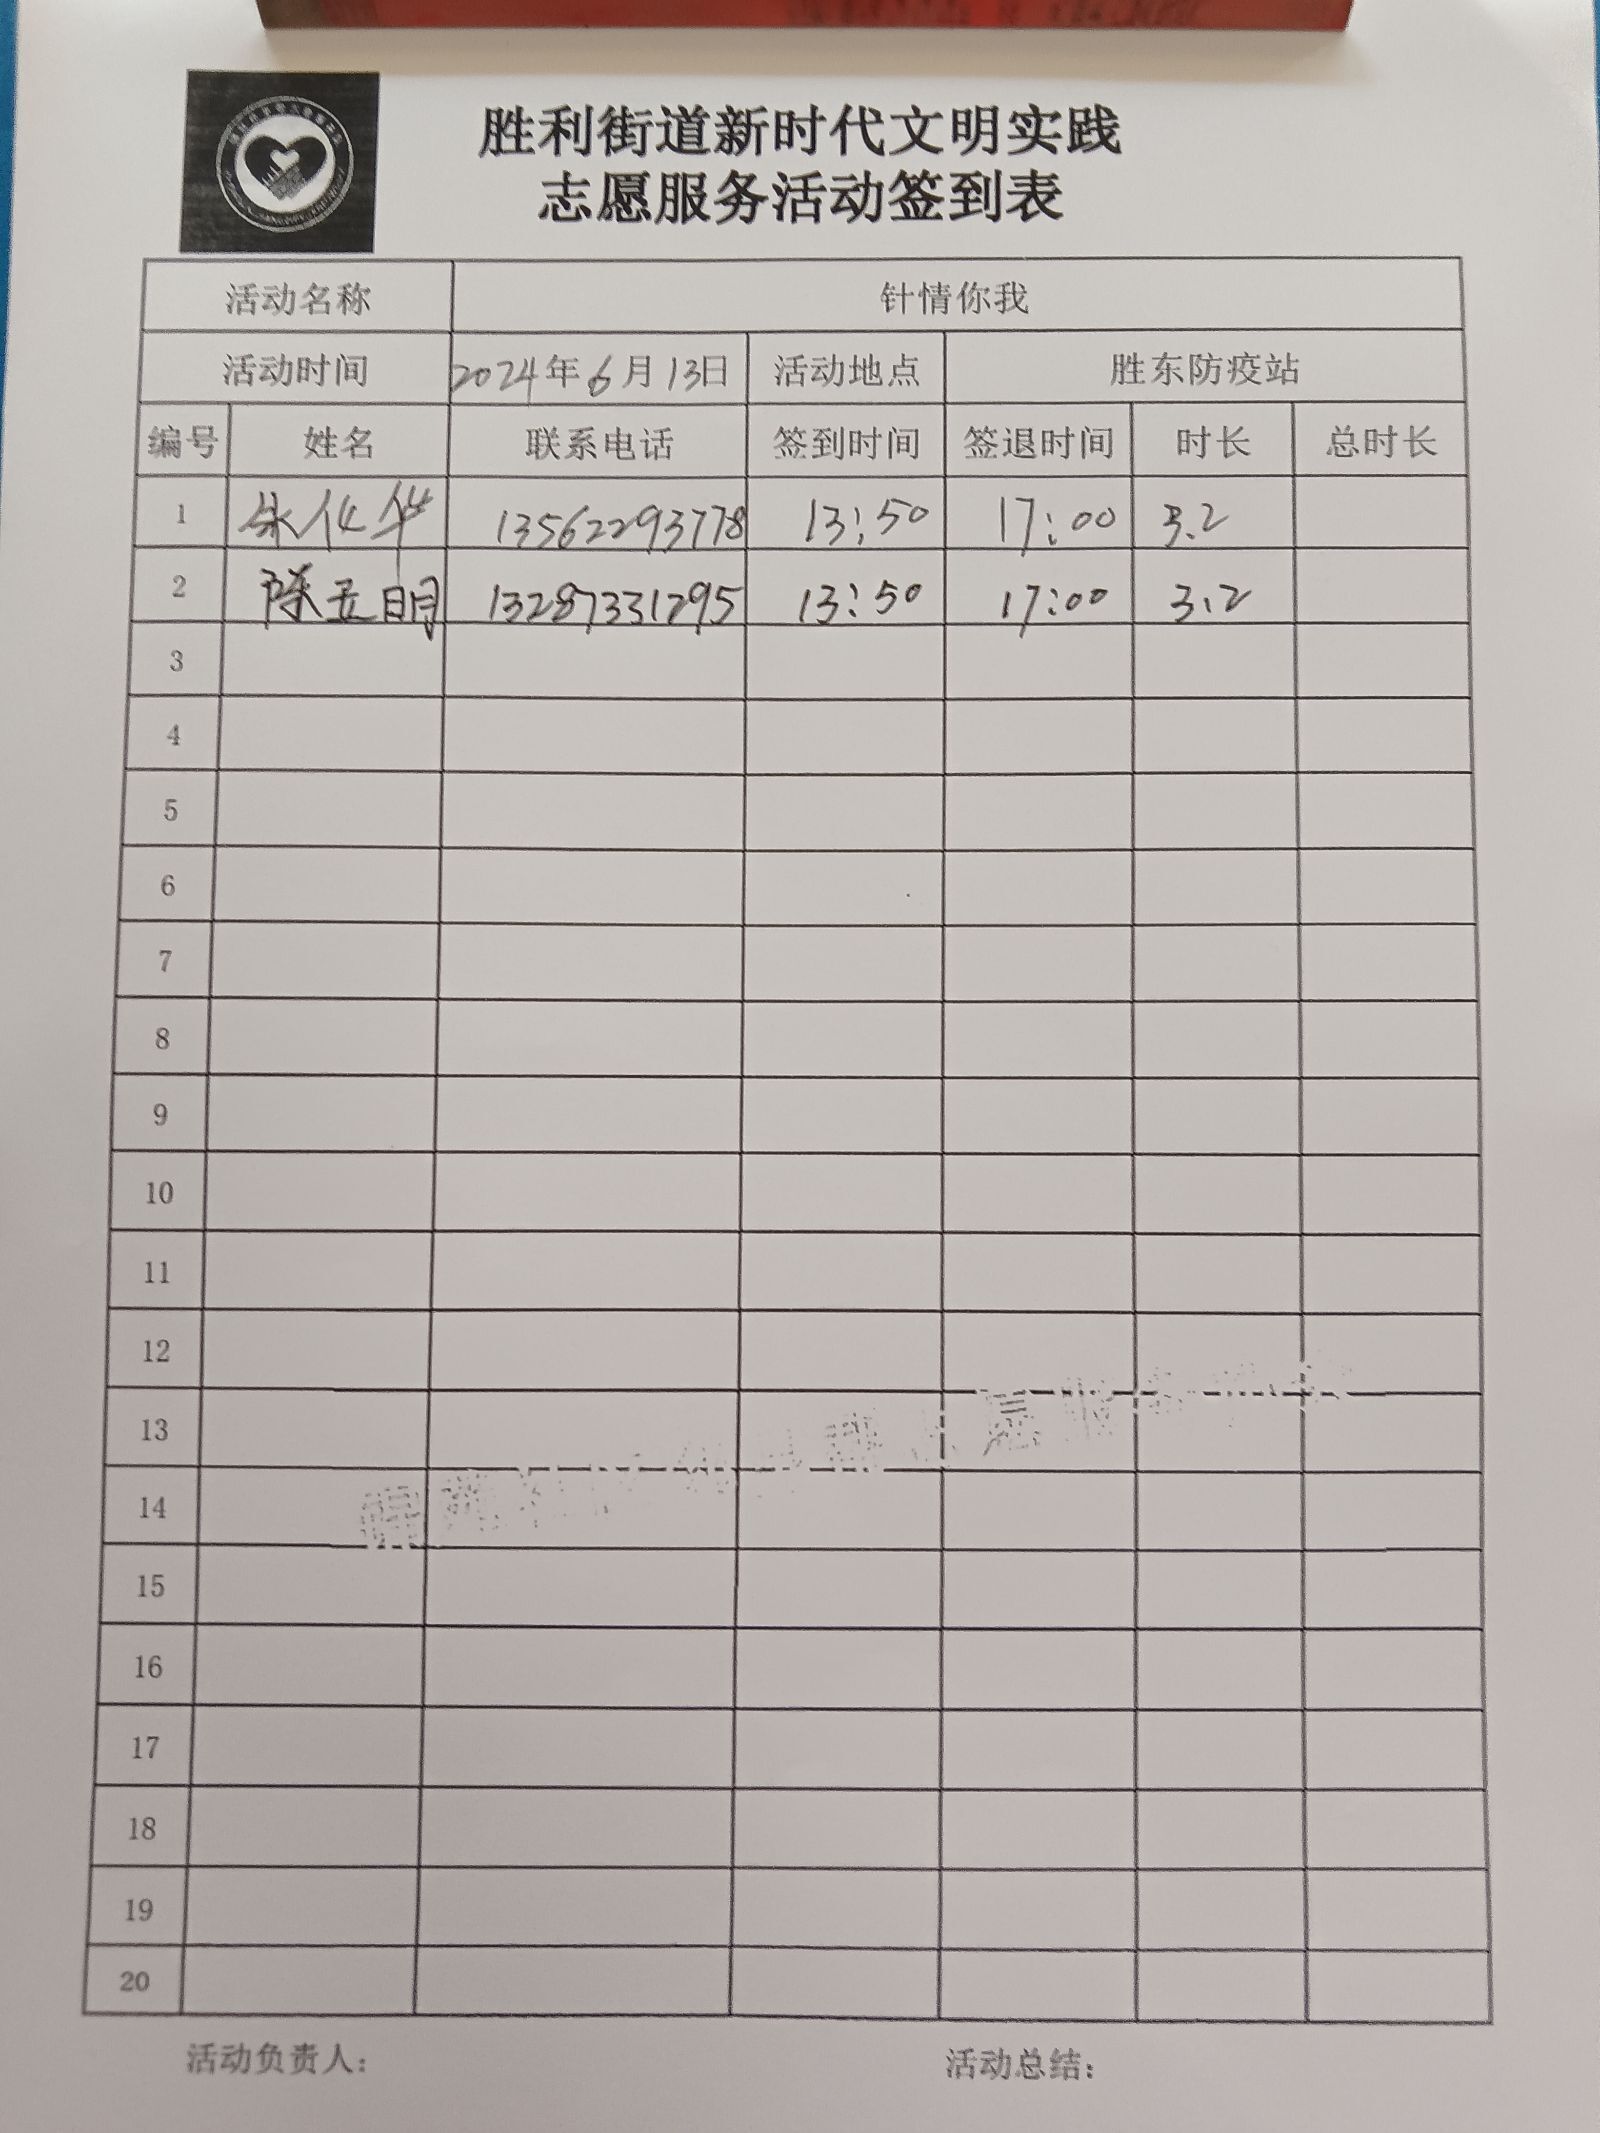 胜利街道新时代文明实践
志愿服务活动签到表
活动名称 针情你我
活动时间 2024年6月13日 活动地点 胜东防疫站
编号 姓名 联系电话 签到时间 签退时间 时长 总时长
1 化华 13562293778 13:50 17:00 3.2
2 陈玉明 13287331295 13:50 17:00 3.2
3
4
5
6
7
8
9
10
11
12
13
14
15
16
17
18
19
20
活动负责人: 活动总结: